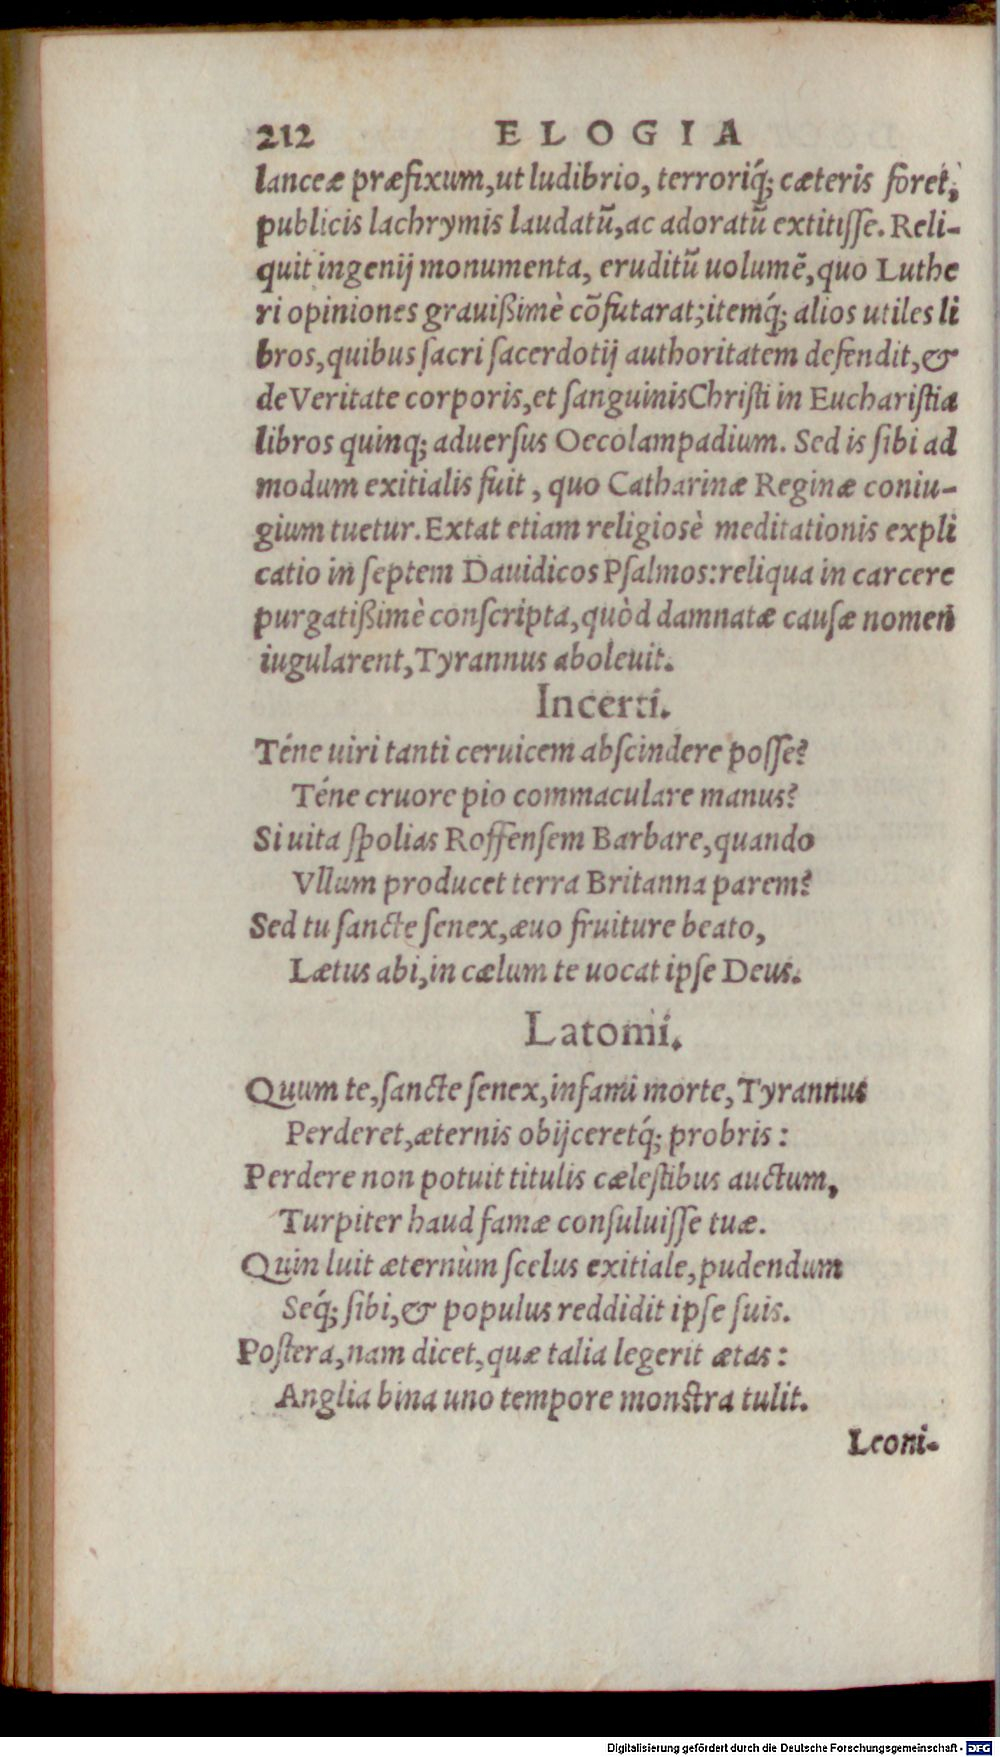 212 ELOGIA
lanceæ præfixum, ut ludibrio, terroriq́; cæteris foret,
publicis lachrymis laudatũ, ac adoratũ extitiſſe. Reli-
quit ingenij monumenta, eruditũ uolumẽ, quo Luthe
ri opiniones grauißimè cõfutarat; itemq́; alios utiles li
bros, quibus ſacri ſacerdotij authoritatem defendit, &
de Veritate corporis, et ſanguinis Chriſti in Euchariſtia
libros quinq; aduerſus Oecolampadium. Sed is ſibi ad
modum exitialis fuit, quo Catharinæ Reginæ coniu-
gium tuetur. Extat etiam religiosè meditationis expli
catio in ſeptem Dauidicos Pſalmos: reliqua in carcere
purgatißimè conſcripta, quòd damnatæ cauſæ nomen
iugularent, Tyrannus aboleuit.
Incerti.
Téne uiri tanti ceruicem abſcindere poſſe?
Téne cruore pio commaculare manus?
Si uita ſpolias Roffenſem Barbare, quando
Vllum producet terra Britanna parem?
Sed tu ſancte ſenex, æuo fruiture beato,
Lætus abi, in cælum te uocat ipſe Deus.
Latomi.
Quum te, ſancte ſenex, infami morte, Tyrannus
Perderet, æternis obijceretq́; probris:
Perdere non potuit titulis cæleſtibus auctum,
Turpiter haud famæ conſuluiſſe tuæ.
Quin luit æternùm ſcelus exitiale, pudendum
Seq́; ſibi, & populus reddidit ipſe ſuis.
Poſtera, nam dicet, quæ talia legerit ætas:
Anglia bina uno tempore monſtra tulit.
Leoni-
Digitalisierung gefördert durch die Deutsche Forschungsgemeinschaft - DFG